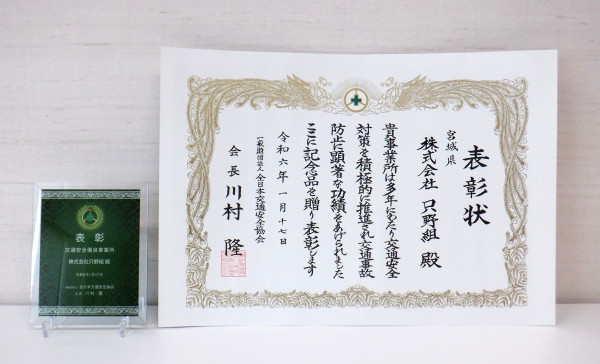 表彰状
宮城県
株式会社 只野組 殿
貴事業所は多年にわたり交通安全
対策を積極的に推進され交通事故
防止に顕著な功績をあげられました
ここに記念品を贈り表彰します
令和六年一月十七日
一般財団法人 全日本交通安全協会
会長 川村 隆
表彰
交通安全優良事業所
株式会社只野組 殿
令和6年1月17日